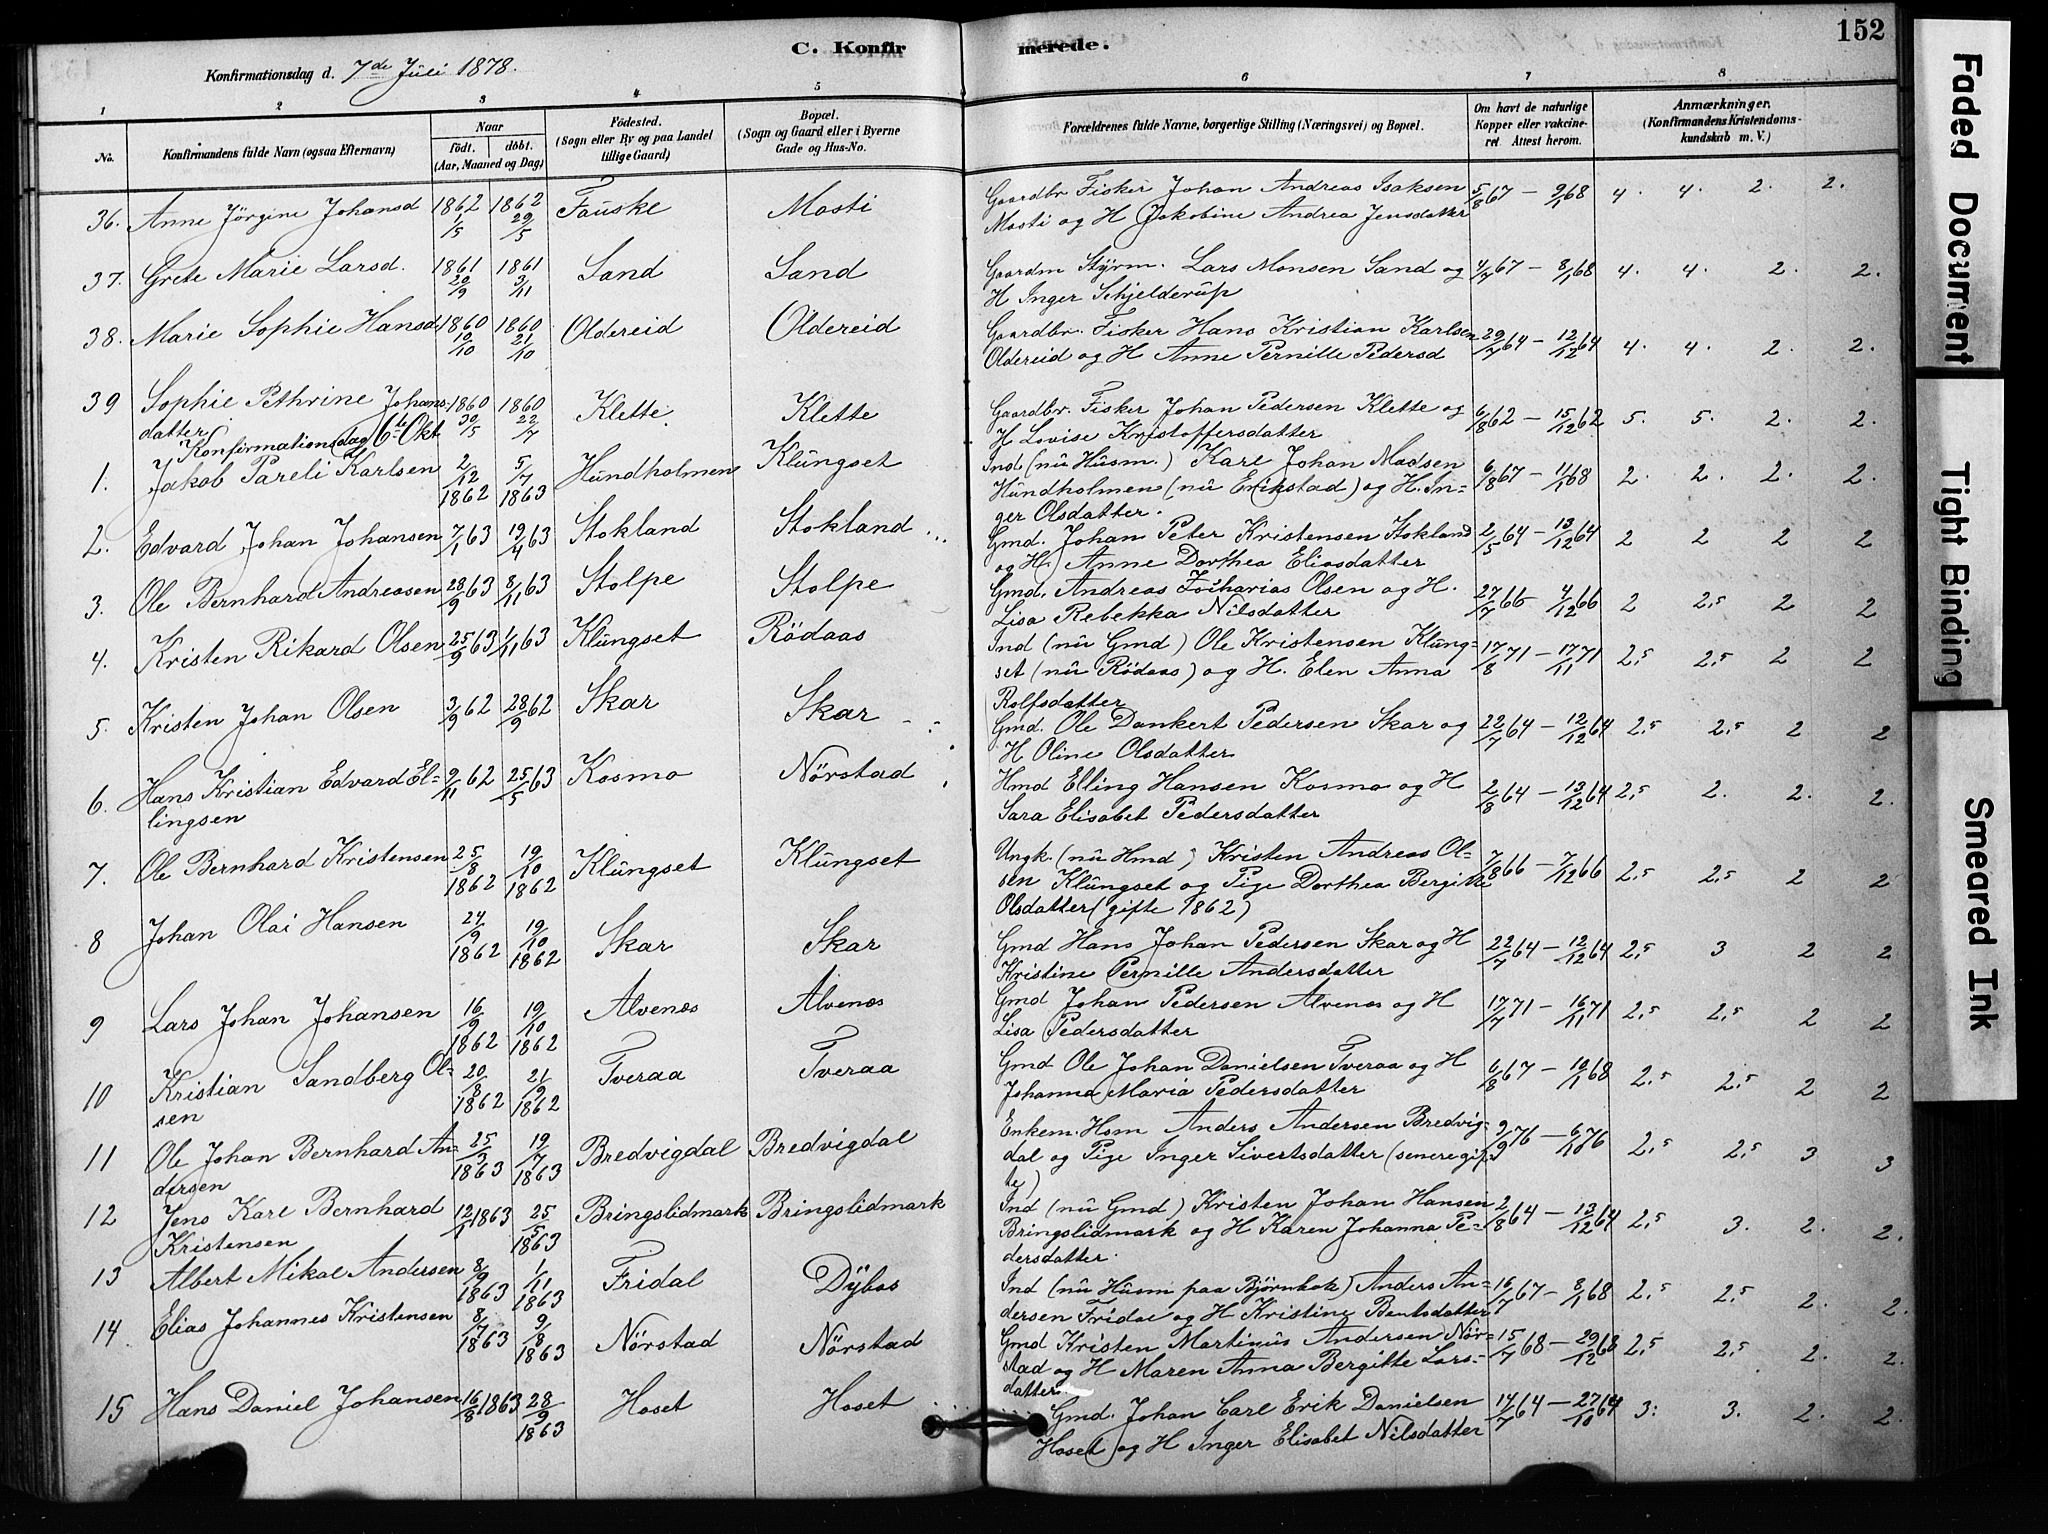 C. Konfirmerede.
152
Konfirmationsdag d. 7de Juli 1878.
1 2 3 4 5 6 7 8
No. Konfirmandens fulde Navn (ogsaa Efternavn) Naar födt. döbt. (Aar, Maaned og Dag) Födested. (Sogn eller By og paa Landet tillige Gaard) Bopæl. (Sogn og Gaard eller i Byerne Gade og Hus-No. Forældrenes fulde Navne, borgerlige Stilling (Næringsvei) og Bopæl. Om havt de naturlige Kopper eller vakcineret Attest herom. Anmærkninger. (Konfirmandens Kristendomskundskab m. V.)
36. Anne Jörgine Johansd 1862 1/5 1862 29/5 Fauske Mosti Gaardbr Fisker Johan Andreas Isaksen 5/8 67 — 9/1 68 4. 4. 2. 2.
Mosti og H Jakobine Andrea Jensdatter
37. Grete Marie Larsd. 1861 29/9 1861 3/11 Sand Sand Gaardm Styrm. Lars Monsen Sand og 4/7 67 — 8/1 68 4. 4. 2. 2.
H Inger Schjelderup
38. Marie Sophie Hansd 1860 19/10 1860 21/10 Oldereid Oldereid Gaardbr. Fisker Hans Kristian Karlsen 29/7 64 — 12/12 64 4. 4. 2. 2.
Oldereid og H Anne Pernille Pedersd
39 Sophie Pethrine Johans- 1860 30/5 1860 22/7 Klette Klette Gaardbr. Fisker Johan Pedersen Klette og 6/8 62 — 15/12 62 5. 5. 2. 2.
datter H Lovise Kristoffersdatter
Konfirmationsdag 6te Okt
1. Jakob Pareli Karlsen 2/12 1862 5/7 1863 Hundholmen Klungset Ind. (nu Husm.) Karl Johan Madsen 6/8 67 — 11/1 68 2. 2. 2. 2.
Hundholmen (nu Erikstad) og H. In-
ger Olsdatter.
2. Edvard Johan Johansen 7/1 63 19/4 63 Stokland Stokland Gmd. Johan Peter Kristensen Stokland 2/5 64 — 13/12 64 2 2 2 2
og H Anne Dorthea Eliasdatter
3. Ole Bernhard Andreasen 28/9 63 8/11 63 Stolpe Stolpe Gmd. Andreas Zacharias Olsen og H. 27/7 66 — 4/12 66 2 2,5 2 2
Lisa Rebekka Nilsdatter
4. Kristen Rikard Olsen 25/9 63 1/11 63 Klungset Rödaas Ind (nu Gmd) Ole Kristensen Klung- 17/8 71 — 17/11 71 2,5 2,5 2 2
set (nu Rödaas) og H. Elen Anna
Rolfsdatter
5. Kristen Johan Olsen 3/9 62 28/9 62 Skar Skar Gmd. Ole Dankert Pedersen Skar og 22/7 64 — 12/12 64 2,5 2,5 2 2
H Oline Olsdatter
6. Hans Kristian Edvard El- 9/11 62 25/5 63 Kosmo Nörstad Hmd Elling Hansen Kosmo og H 2/8 64 — 13/12 64 2,5 2. 2. 2.
lingsen Sara Elisabet Pedersdatter
7. Ole Bernhard Kristensen 25/8 1862 19/10 1862 Klungset Klungset Ungk. (nu Hmd) Kristen Andreas Ol- 7/8 66 — 7/12 66 2,5 2,5 2 2
sen Klungset og Pige Dorthea Bergitte
Olsdatter (gifte 1862)
8 Johan Olai Hansen 24/9 1862 19/10 1862 Skar Skar Gmd Hans Johan Pedersen Skar og H 22/7 64 — 12/12 64 2,5 3 2 2
Kristine Pernille Andersdatter
9 Lars Johan Johansen 16/9 1862 19/10 1862 Alvenes Alvenes Gmd Johan Pedersen Alvenes og H 17/7 71 — 16/11 71 2,5 2,5 2 2
Lisa Pedersdatter
10 Kristian Sandberg Ol- 20/8 1862 21/9 1862 Tveraa Tveraa Gmd Ole Johan Danielsen Tveraa og H 6/8 67 — 10/1 68 2,5 2,5 2 2
sen Johanna Maria Pedersdatter
11 Ole Johan Bernhard An- 25/3 1863 19/7 1863 Bredvigdal Bredvigdal Enkem. Hsm Anders Andersen Bredvig- 9/9 76 — 6/10 76 2,5 2,5 3 3
dersen dal og Pige Inger Sivertsdatter (senere gif-
te)
12 Jens Karl Bernhard 12/1 1863 25/5 1863 Bringslidmark Bringslidmark Ind (nu Gmd) Kristen Johan Hansen 2/8 64 — 13/12 64 2,5 3. 2. 2.
Kristensen Bringslidmark og H Karen Johanna Pe-
dersdatter.
13 Albert Mikal Andersen 8/9 1863 1/11 1863 Fridal Dybos Ind (nu Husm paa Björnbak) Anders An- 16/7 67 — 8/1 68 2,5 2,5 2. 2.
dersen Fridal og H Kristine Bentsdatter
14. Elias Johannes Kristensen 8/7 1863 9/8 1863 Nörstad Nörstad Gmd Kristen Martinus Andersen Nör- 15/7 68 — 29/12 68 2,5 2,5 2. 2.
stad og H Maren Anna Bergitte Lars-
datter.
15 Hans Daniel Johansen 16/8 1863 28/9 1863 Hoset Hoset Gmd. Johan Carl Erik Danielsen 14/7 64 — 27/10 64 3. 3. 2. 2.
Hoset og H Inger Elisabet Nilsdatter
Faded Document
Tight Binding
Smeared Ink